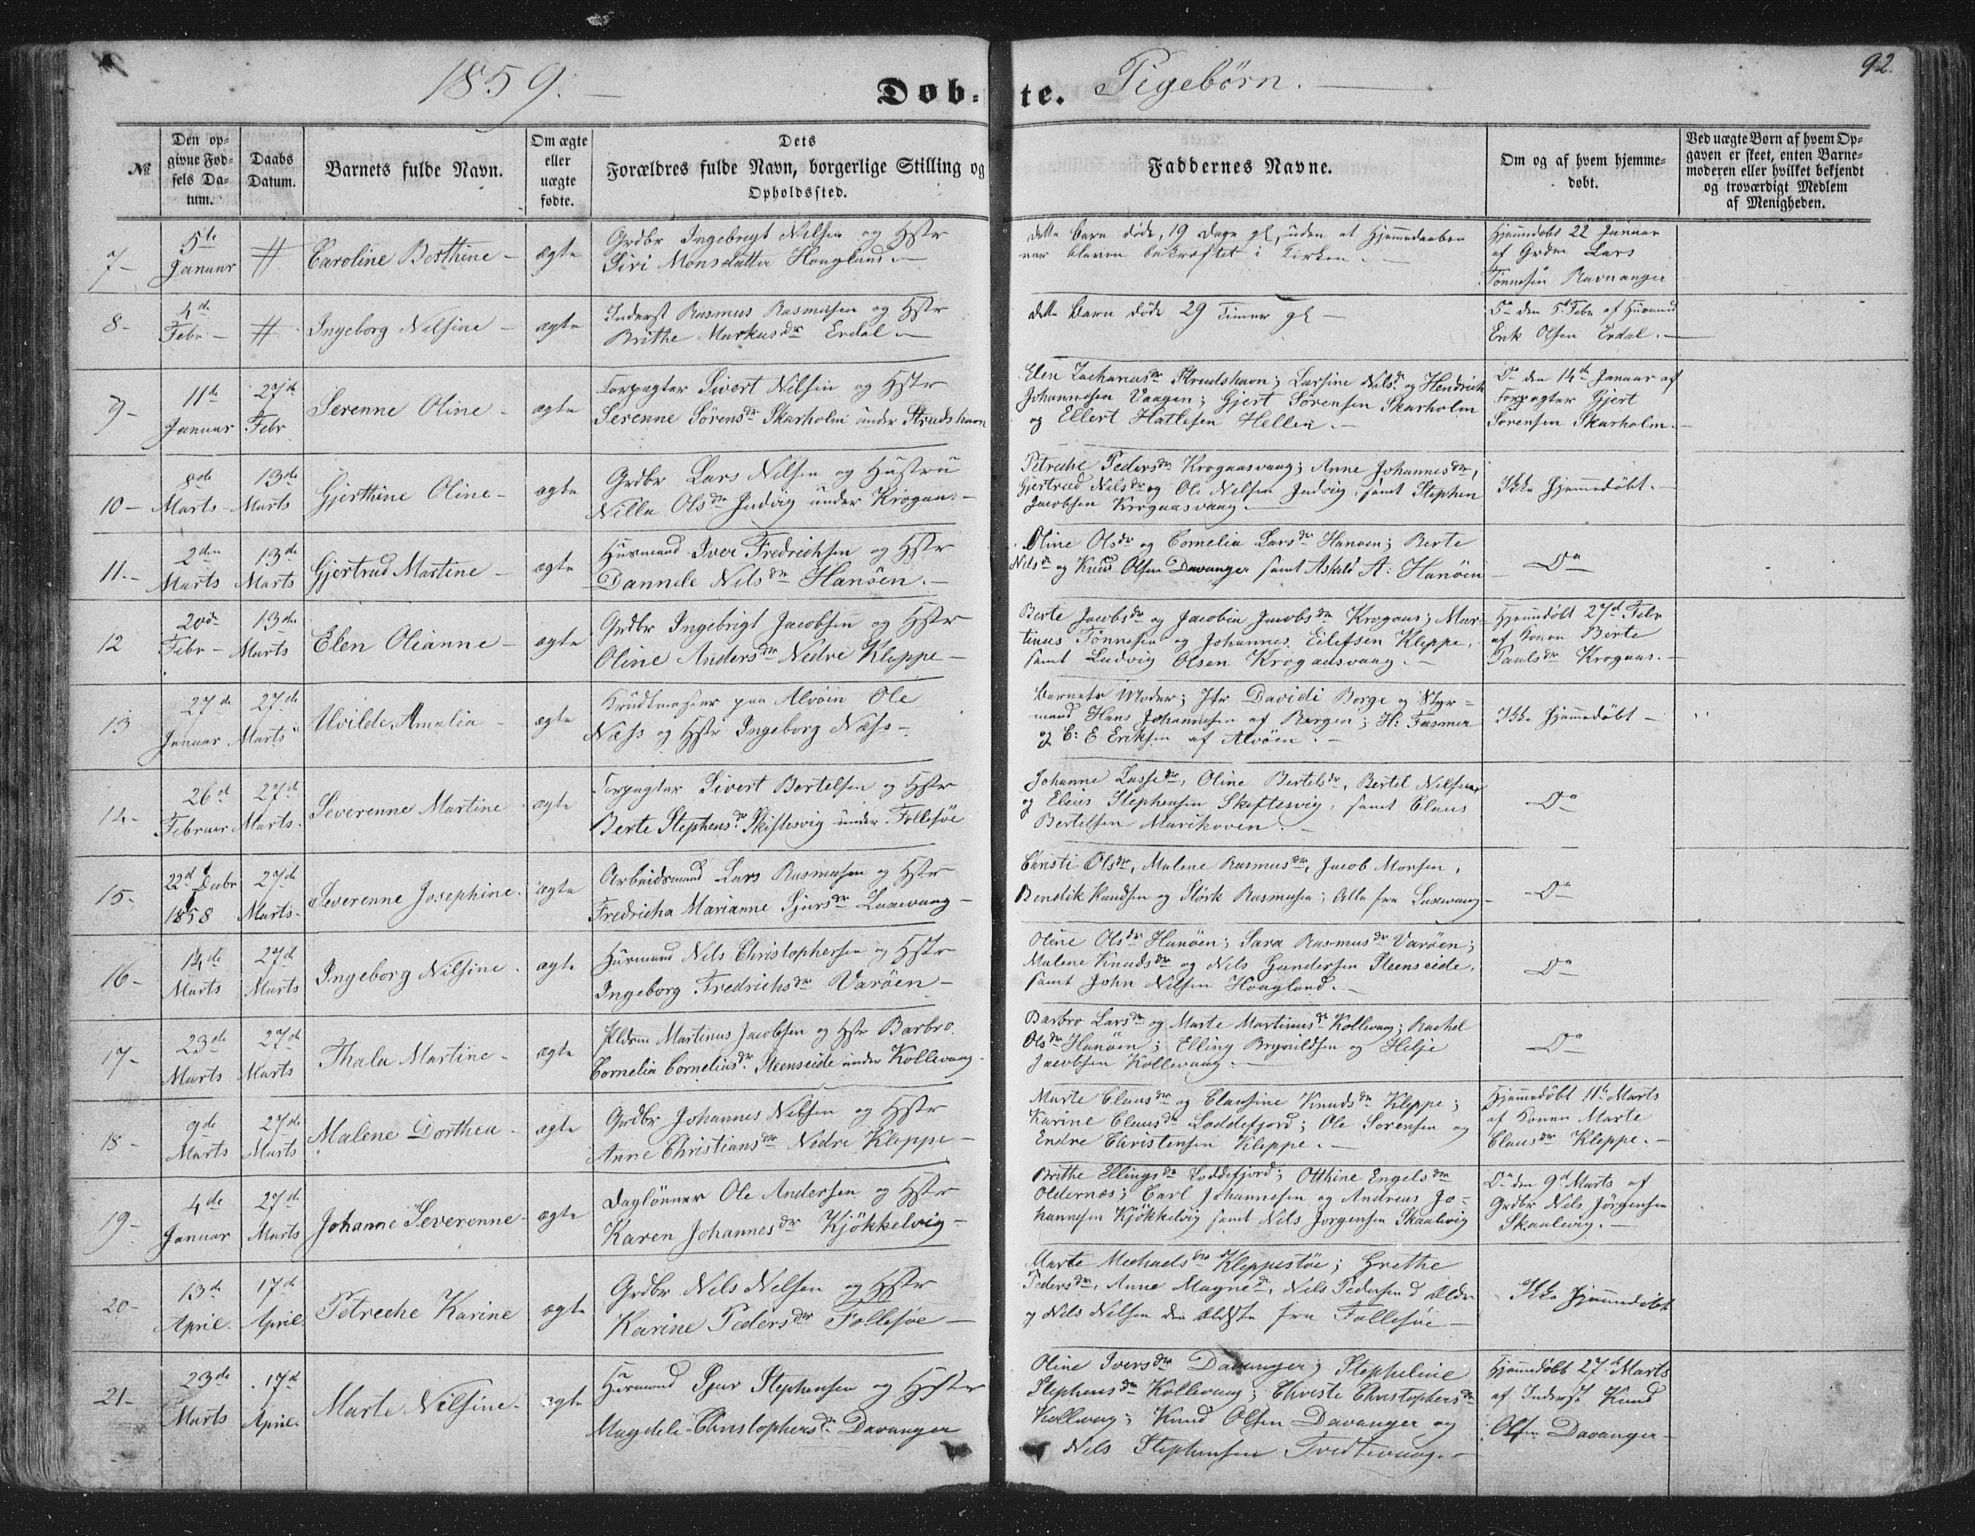 1859.
Døb-te.
Pigebørn.
92.
№
Den opgivne Fødsels Datum.
Daabs Datum.
Barnets fulde Navn.
Om ægte eller uægte fødte.
Dets Forældres fulde Navn, borgerlige Stilling og Opholdssted.
Faddernes Navne.
Om og af hvem hjemmedøbt.
Ved uægte Børn af hvem Opgaven er skeet, enten Barnemoderen eller hvilket bekjendt og troværdigt Medlem af Menigheden.
7- 5te Januar # Caroline Berthine - ægte
Grdbr Ingebrigt Nilsen og Hstr
Siri Monsdatter Hougland. -
dette Barn døde, 19 Dage gl, uden at Hjemmedaaben
var bleven bekræftet i Kirken. -
Hjemmedøbt 22 Januar
af Grdm Lars
Tønnesen Ravnanger
8- 4de Febr - # Ingeborg Nilsine - ægte
Inderst Rasmus Rasmusen og Hstr
Brithe Markusdr Erdal. -
dette Barn døde 29 Timer gl -
Do den 5t Febr af Husmand
Erik Olsen Erdal. -
9- 11te Januar 27de Febr Serenne Oline - ægte
Forpagter Sivert Nilsen og Hstr
Serenne Sørensdr Skarholm under Strudshavn
Elen Zachariasdr Strudshavn; Larsine Nilsdr og Hendrich
Johannesen Vaagen; Gjert Sørensen Skarholm
og Ellert Hatlesen Hellen. -
Do den 14th Januar af
Forpagter Gjert
Sørensen Skarholm. -
10- 8de Marts - 13de Marts Gjerthine Oline - ægte
Grdbr Lars Nilsen og Hustru
Nilla Olsdr Indvig under Krogaas. -
Petreche Pedersdr Krogaasvaag; Anne Johannesdr,
Gjertrud Nilsdr og Ole Nilsen Indvig, samt Stephen
Jacobsen Krogaasvaag. -
Ikke hjemmedøbt. -
11.- 2den Marts 13de Marts Gjertrud Martine - ægte
Husmand Iver Fredrichsen og Hstr
Dannele Nilsdr Hanøen. -
Oline Olsdr og Cornelia Larsdr Hanøen; Berte
Nilsdr og Knud Olsen Davanger samt Askeld A: Hanøen
Do
12 20de Febr - 13de Marts Elen Olianne - ægte
Grdbr Ingebrigt Jacobsen og Hstr
Oline Andersdr Nedre Kleppe -
Berte Jacobsdr og Jacobia Jacobsdr Krogaas; Mar-
tinus Tønnesen og Johannes Eilefsen Kleppe,
samt Ludvig Olsen Krogaasvaag. -
Hjemmedøbt 27d Febr
af Konen Berte
Paulsdr Krogaas. -
13 27de Januar 27de Marts Alvilde Amalia - ægte
Krudtmager paa Alvøen Ole
Næss og Hstr Ingeborg Næss -
Barnets Moder; Jfr Davidi Borge og Styr-
mand Hans Johannesen af Bergen; H: Fasmer
og C: E Eriksen af Alvøen. -
Ikke hjemmedøbt -
14- 26d Februar 27d Marts. Severenne Martine ægte
Forpagter Sivert Bertelsen og Hstr
Berte Stephensdr Skiftesvig under Follesøe
Johanne Lassedr, Oline Bertelsdr, Bertel Nilsen
og Elius Stephensen Skiftesvig, samt Claus
Bertelsen Marikoven. -
Do
15- 22d Decbr 1858 27d Marts- Severenne Josephine. ægte
Arbeidsmand Lars Rasmusen og Hstr
Fredricha Marianne Sjursdr Laxevaag -
Christi Olsdr, Malene Rasmusdr, Jacob Monsen,
Bendik Knudsen og Størk Rasmusen; Alle fra Laxevaag -
Do
16- 14de Marts 27d Marts Ingeborg Nilsine. ægte
Husmand Nils Christophersen og Hstr
Ingeborg Fredrichsdr Varøen -
Oline Olsdr Hanøen; Sara Rasmusdr Varøen;
Malene Knudsdr og Nils Gundersen Steenseide,
samt John Nilsen Hougland. -
Do
17- 23de Marts 27d Marts Thala Martine - ægte
Martinus Jacobsen og Hstr Barbro
Cornelia Corneliusdr Steenseide under Kollevaag.
Barbro Larsdr og Marte Martinusdr Kollevaag; Rachel
Olsdr Hanøen; Elling Brynildsen og Helje
Jacobsen Kollevaag. -
Do
18- 9de Marts 27de Marts Malene Dorthea. ægte
Grdbr Johannes Nilsen og Hstr
Anne Christiansdr Nedre Kleppe -
Marte Clausdr og Clausine Knudsdr Kleppe;
Karine Clausdr Loddefjord; Ole Sørensen og
Endre Christensen Kleppe. -
Hjemmedøbt 11te Marts
af Konen Marte
Clausdr Kleppe. -
19- 4de Januar 27d Marts Johanne Severenne - ægte
Daglønner Ole Andersen og Hstr
Karen Johannesdr Kjøkkelvig -
Brithe Ellingsdr Loddefjord; Otthine Engelsdr
Oldernæs; Carl Johannesen og Andreas Jo-
hannesen Kjøkkelvig samt Nils Jørgensen Skaalevig
Do den 9d Marts af
Grdbr Nils Jørgensen
Skaalevig. -
20- 13de April. 17d April Petreche Karine ægte
Grdbr Nils Nilsen og Hstr
Karine Pedersdr Follesøe -
Marte Michaelsdr Kleppestøe; Grethe
Pedersdr, Anne Magnedr, Nils Pedersen d ældre
og Nils Nilsen den ældste fra Follesøe -
Ikke hjemmedøbt
21- 23de Marts 17d April Marte Nilsine. ægte
Husmand Sjur Stephensen og Hstr
Magdeli Christophersdr Davanger
Oline Iversdr Davanger; Stepheline
Stephensdr Kollevaag; Christi Christophersdr
Kollevaag; Knud Olsen Davanger og
Nils Stephensen Tvedtevaag. -
Hjemmedøbt 27d Marts
af Inderst Knud
Olsen Davanger -